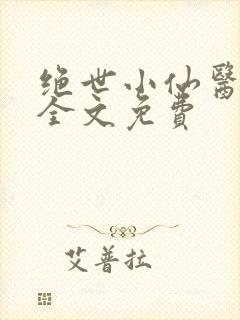 绝世小仙醫
全文免費
艾普拉